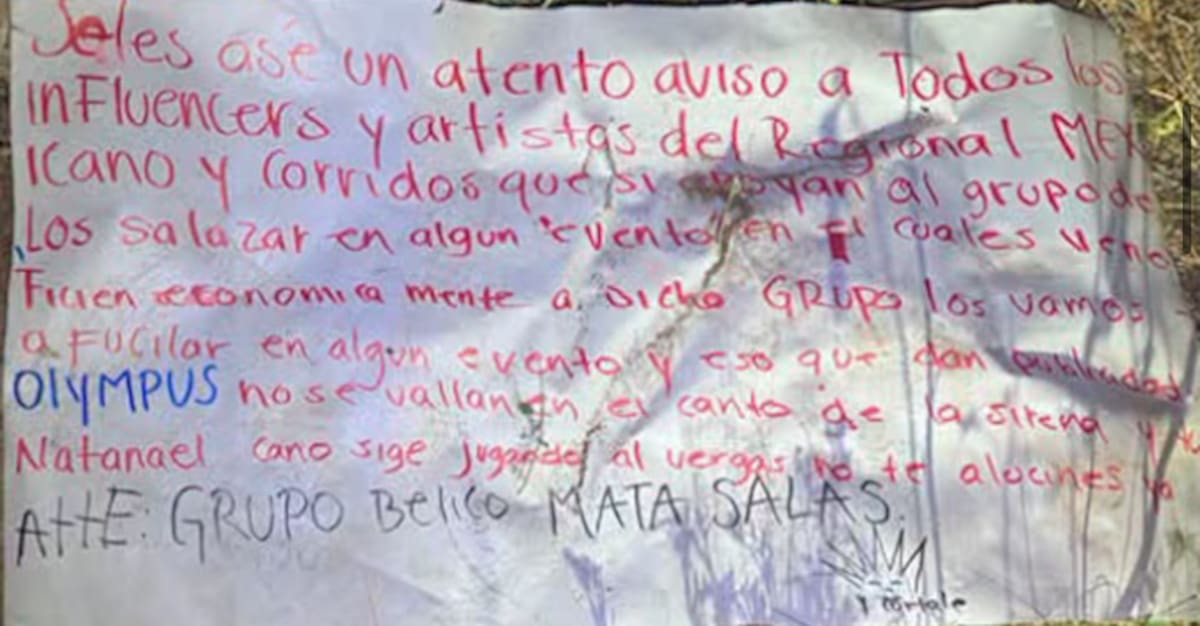 Seles ase un atento aviso a Todos los
inFluencers y artistas del Regional MEX
icano y Corridos que si apoyan al grupo de
Los salazar en algun "evento" en el cuales vene
Ficien economica mente a dicho GRUPO los vamos
a FUCilar en algun evento y eso que dan publicidad
OlYMPUS no se vallan en el canto de la sirena y
Natanael cano sige jugando al vergas no te alocines ya
AttE: GRUPO Belico MATA SALAS.